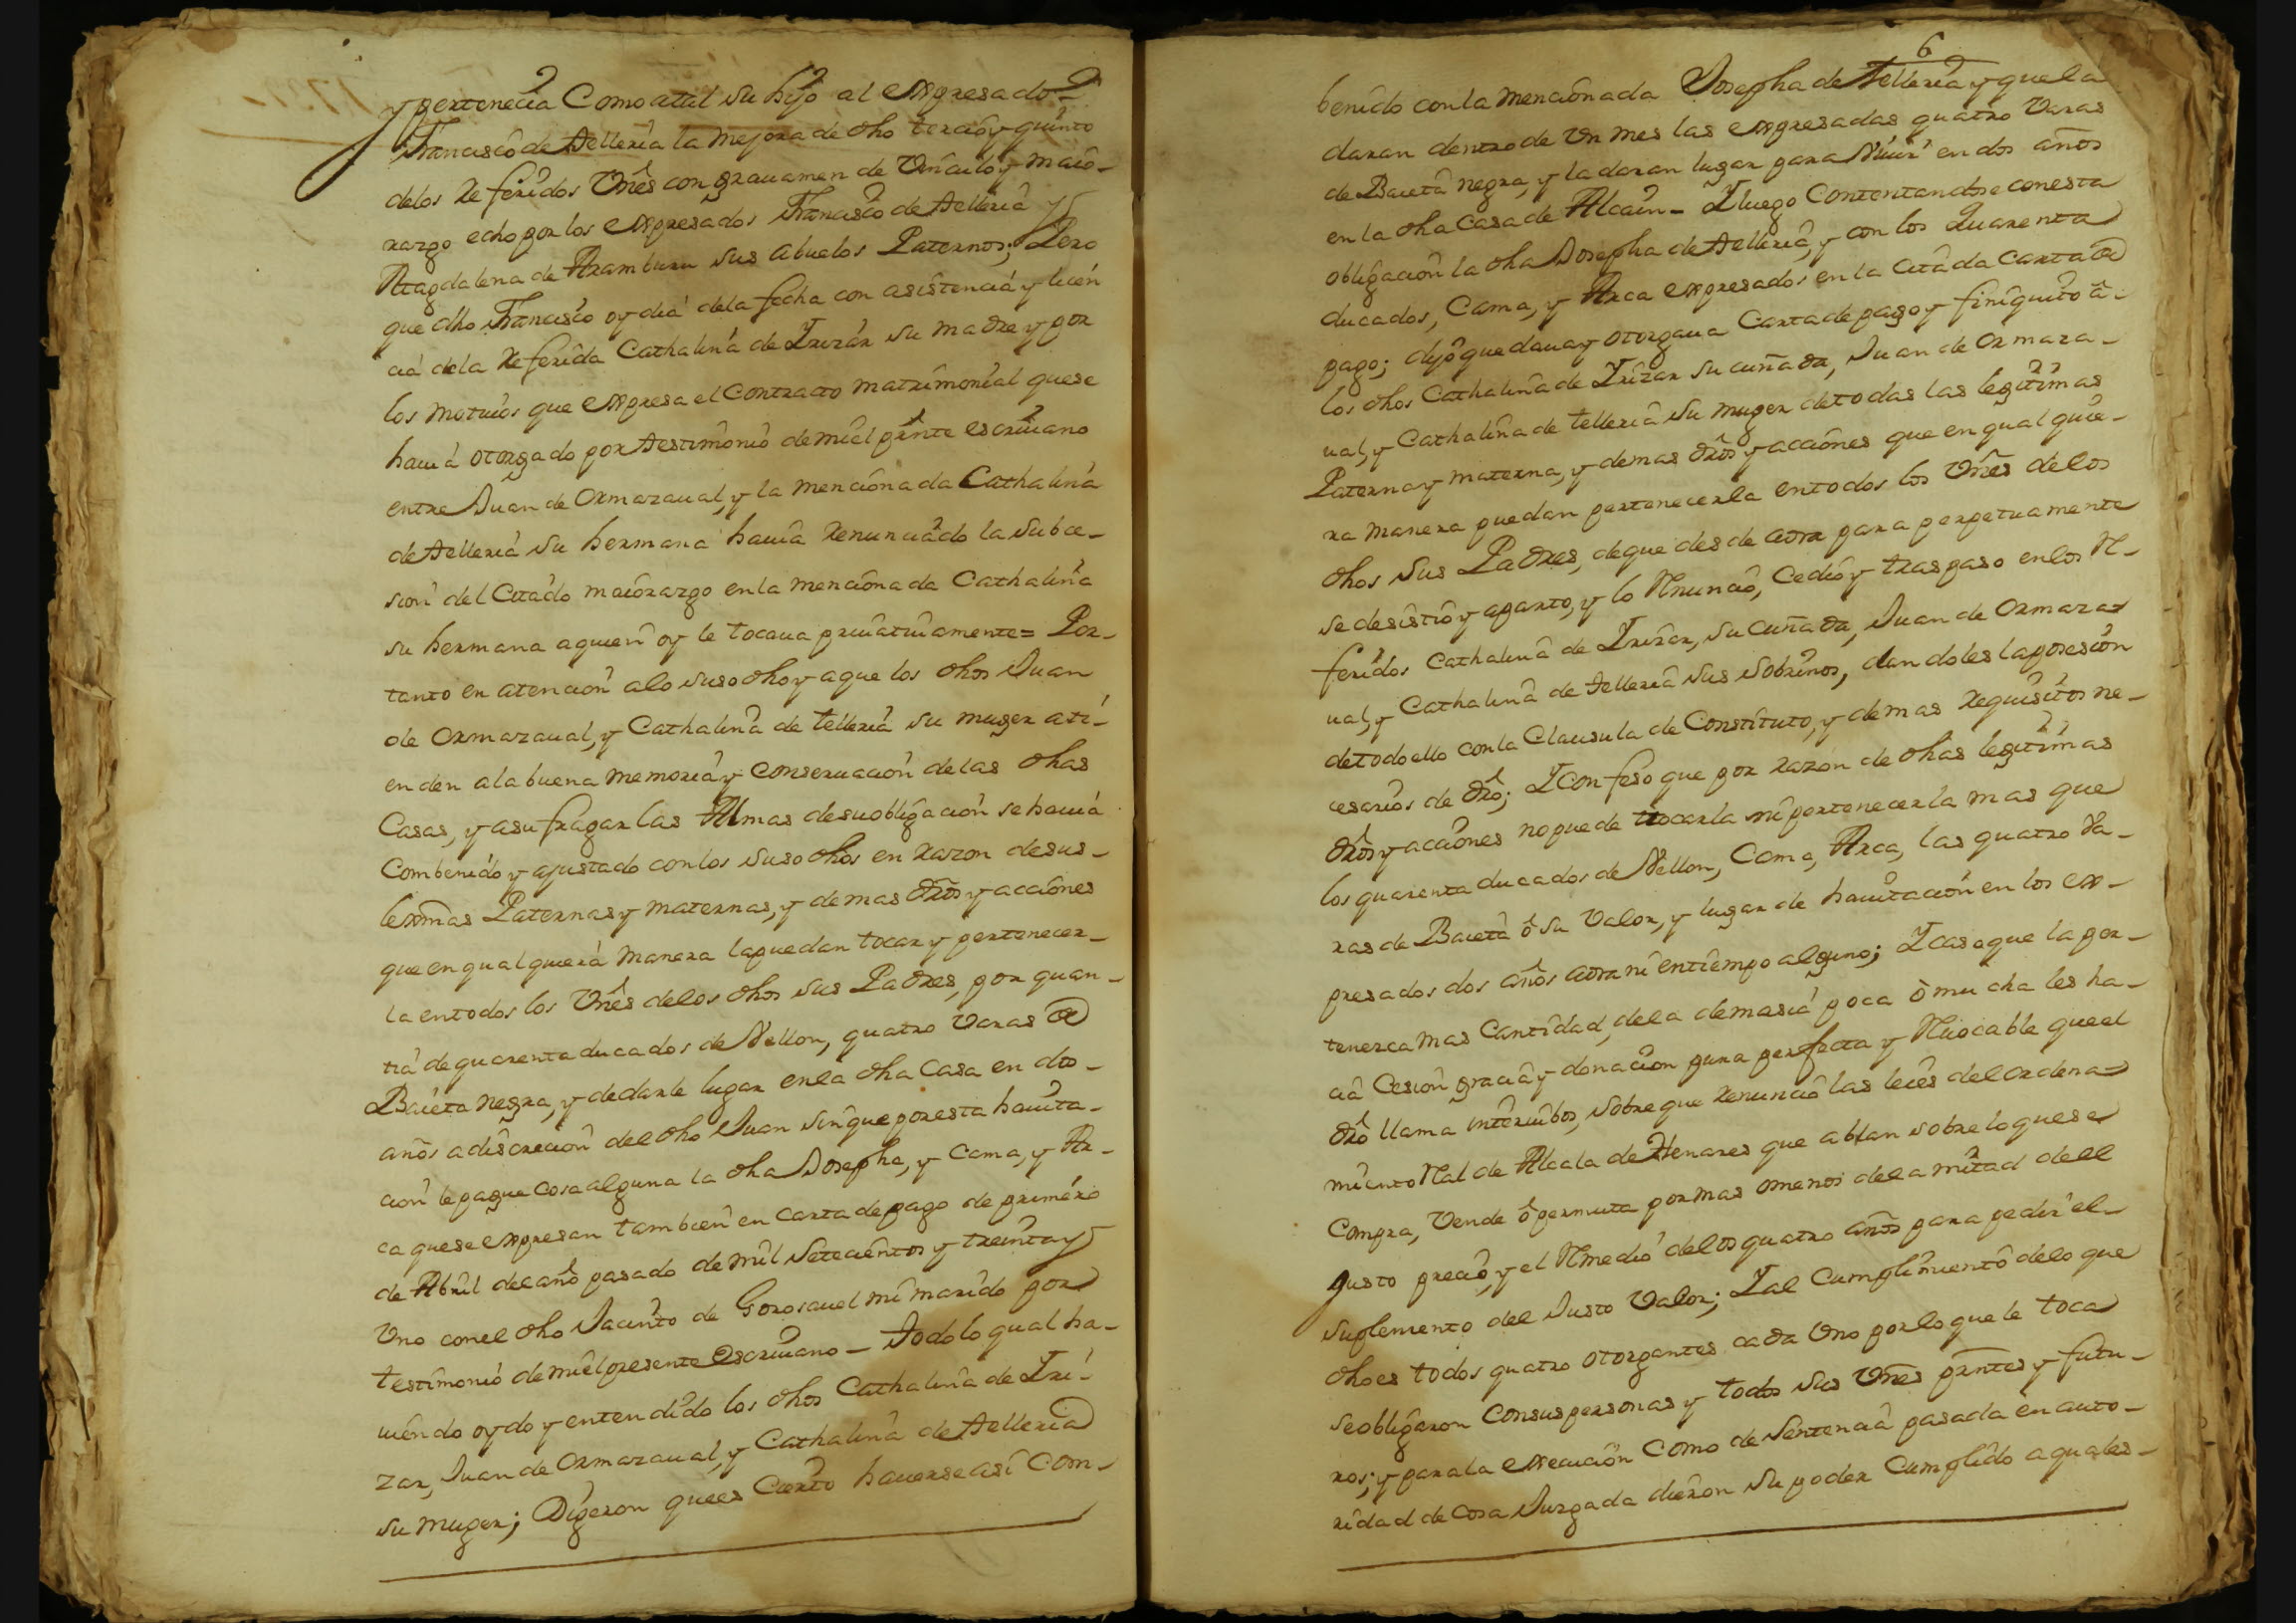 y pertenecia Como atal su hijo al expresado
Francisco de Telleria la mejora de dho tercio y quinto
delos Referidos Vnês con grauamen de Vinculo y maio-
razgo echo por los expresados Francisco de Telleria y
Magdalena de Aramburu sus Abuelos Paternos; Pero
que dho Francisco oy dia dela fecha con asistencia y licen
cia dela Referida Cathalina de Irizar su madre y por
los motiuos que expresa el Contracto matrimonial quese
hauia otorgado por testimonio de mi el pnte escriuano
entre Juan de Ormazaual, y la mencionada Cathalina
de Telleria su hermana hauia Renunciado la subce-
sion del Citado maiorazgo en la mencionada Cathalina
su hermana aquien oy le tocaua priuatiuamente= Por-
tanto en atencion alo suso dho y aque los dhos Juan
de Ormazaual, y Cathalina de telleria su muger ati-
enden ala buena memoria y conseruacion delas dhas
Casas, y asufragar las Almas desuobligacion se hauia
Combenido y ajustado conlos suso dhos en razon desus-
lexmas Paternas y maternas, y demas dros y acciones
que en qual quiera manera lapuedan tocar y pertenecer-
la entodos los Vnês delos dhos sus Padres, por quan-
tia de quarenta ducados de Vellon, quatro Varas de
Baieta negra, y dedarle lugar enla dha Casa en dos
años a discrecion del dho Juan sinque poresta hauita-
cion le pague cosa alguna la dha Josepha, y Cama, y Ar-
ca quese expresan tambien en carta de pago de primero
de Abril del año pasado de mil Setecientos y treinta y
Vno conel dho Jacinto de Gorosauel mi marido por
testimonio de miel presente Escriuano - Todo lo qual ha-
uiendo oydo y entendido los dhos Cathalina de Iri-
zar, Juan de Ormazaual, y Cathalina de Telleria
su muger; Digeron quees Cierto hauerse asi Com-
6
benido con la mencionada Josepha de Telleria y que la
daran dentro de Vn mes las expresadas quatro Varas
de Baieta negra, y la daran lugar para Viuir en dos años
en la dha Casa de Alcain - I luego Contentandose conesta
obligacion la dha Josepha de Telleria, y con los Quarenta
ducados, Cama, y Arca expresados en la Citada Carta de
pago; dijo que daua y otorgaua Carta de pago y finiquito â
los dhos Cathalina de Irizar su cuñada, Juan de Ormaza-
ual, y Cathalina de telleria su muger detodas las legitimas
Paterna y materna, y demas dros y acciones que en qual quie-
ra manera puedan pertenecerla entodos los Vnês delos
dhos sus Padres, deque des de aora para perpetuamente
se desistio y aparto, y lo Renuncio, Cedio y traspaso enlos Re-
feridos Cathalina de Irizar, su cuñada, Juan de Ormaza-
ual, y Cathalina de telleria sus sobrinos, dandoles laposesion
detodo ello con la Clausula de Constituto, y demas Requisitos ne-
cesarios de dro; I Confeso que por razon de dhas legitimas
dros y acciones nopuede tocarla ni pertenecerla mas que
los quarenta ducados de Vellon, Cama, Arca, las quatro Va-
ras de Baieta ô su Valor, y lugar de hauitacion en los ex-
presados dos años aora ni entiempo alguno; I caso que la per-
tenezca mas Cantidad, dela demasia poca ô mucha les ha-
cia Cesion gracia y donacion pura perfecta y Reuocable que el
dro llama interuibos, sobre que Renuncio las leies del ordena-
miento Real de Alcala de Henares que ablan sobre lo que se
Compra, Vende ô permuta por mas omenos dela mitad dell
justo precio, y el Remedio delos quatro años para pedir el
suplemento del Justo Valor; I al Cumplimiento delo que
dho es todos quatro otorgantes cada Vno porlo que le toca
seobligaron Consus personas y todos sus Vnês pntes y futu-
ros; y para la execucion Como de Sentencia pasada en auto-
ridad de cosa Juzgada dieron su poder Cumplido a quales-